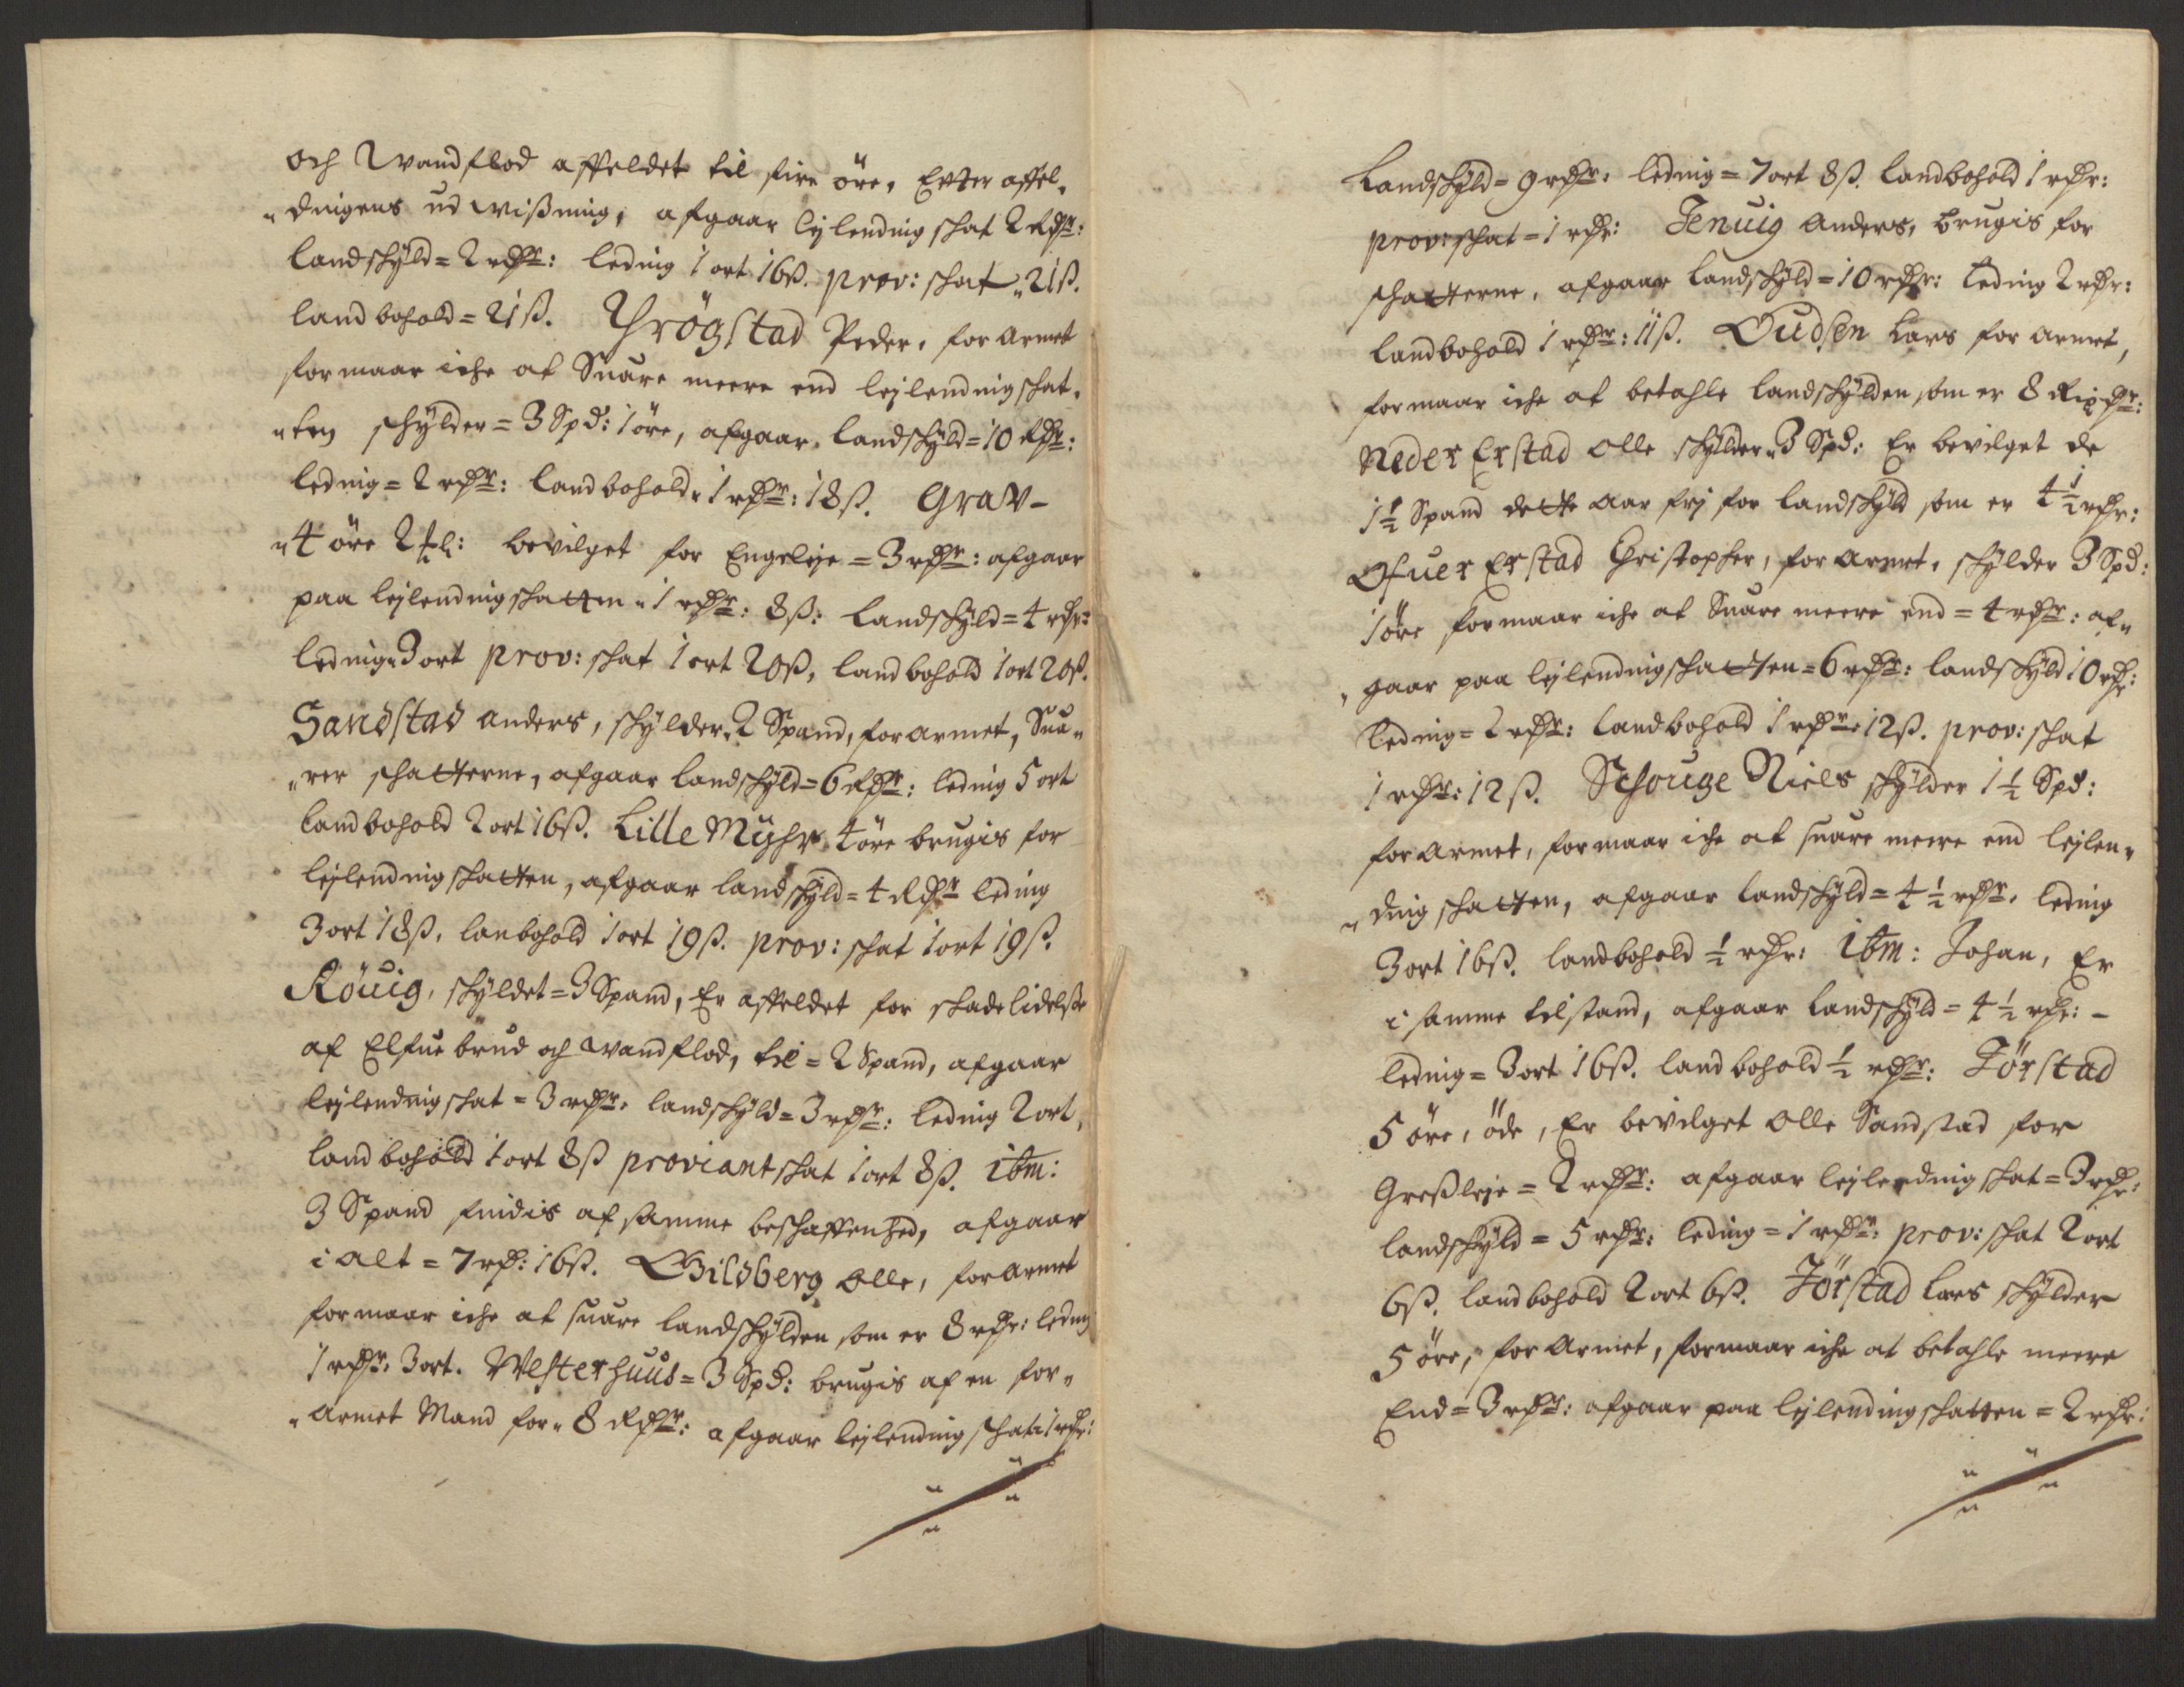 och Wandflod affeldet til fire öre, Efter affel„
„dnigens udwißning, afgaar lejlending schat 2 Rdr:
landschÿld = 2 rdr: leding 1 ort 16ß. prov: schat „ 21ß.
landbohold = 21ß. Thrögstad Peder, forarmet
formaar iche at Suare meere end lejlendnigschat„
„ten schÿlder = 3 Spd: 1 öre, afgaar landschÿld = 10 Rdr:
lednig = 2 rdr: landbohold „ 1 rdr: 18ß. Grav-
„4 öre 2 bevilget for Engeleje = 3 rdr: afgaar
paa lejlendnigschatten „ 1 rdr: 8ß: landschÿld = 4 rdr:
lednig „ 3 ort prov: schat 1 ort 20ß, landbohold 1 ort 20ß.
Sandstad anders, schÿlder „ 2 Spand, forarmet, Sua„
„rer schatterne, afgaar landschÿld = 6 Rdr: leding 5 ort
landbohold 2 ort 16ß. Lille Mÿhr 4 öre brugis for
lejlendnigschatten, afgaar landschÿld = 4 Rdr leding
3 ort 18ß, lanbohold 1 ort 19ß. prov: schat 1 ort 19ß.
Röuig, schÿldet = 3 Spand, Er affeldet for schadelidelße
af Elfue brud och Wandflod, til = 2 Spand, afgaar
lejlendnigschat = 3 rdr, landschÿld = 3 rdr: leding 2 ort,
landbohold 1 ort 8ß proviantschat 1 ort 8ß. ibm:
3 Spand findis af samme beschaffenhed, afgaar
i alt = 7 rd: 16ß. Gildberg olle, forarmet
formaar iche at suare landschÿlden som er 8 rdr: ledni
1 rdr: 3 ort. Westerhuus = 3 Spd: brugis af en for„
„armet Mand for „ 8 Rdr: afgaar lejlending schat 1 rdr:
Landschÿld = 9 rdr: lednig = 7 ort 8ß. landbohold 1 rdr:
prov: schat = 1 rdr: Jenuig anders, brugis for
schatterne, afgaar landschÿld = 10 rdr: leding 2 rdr:
landbohold 1 rdr: 11ß. Oudsen Lars for armet,
formaar iche at betahle landschÿlden som er 8 Rixdr:
Neder Erstad olle schÿlder „ 3 Spd: Er bevilget de
1½ Spand dette aar frj for landschÿld som er 4½ rdr:
Ofuer Erstad Christopher, forarmet, schÿlder 3 Spd:
1 öre formaar iche at Suare meere end = 4 rdr: af„
„gaar paa lejlendnigschatten = 6 rdr: landschÿld 10 rdr:
lednig = 2 rdr: landbohold 1 rdr: 12ß. prov: schat
1 rdr: 12ß. Schouge Niels schÿlder 1½ Spd:
forarmet, formaar iche at suare meere end lejlen„
„dnigschatten, afgaar landschÿld = 4½ rdr, leding
3 ort 16ß. landbohold ½ rdr: ibm: Johan, Er
i samme tilstand, afgaar landschÿld = 4½ rdr: -
lednig = 3 ort 16ß. landbohold ½ rdr: Jörstad
5 öre, öde, Er bevilget olle Sandstad for
Greßleje = 2 rdr: afgaar lejlendnigschat = 3 rdr:
landschÿld = 5 rdr: leding = 1 rdr: prov: schat 2 ort
6ß. landbohold 2 ort 6ß. Jörstad Lars schÿlder
5 öre, forarmet, formaar iche at betahle meere
End = 3 rdr: afgaar paa lejlendingschatten = 2 rdr: